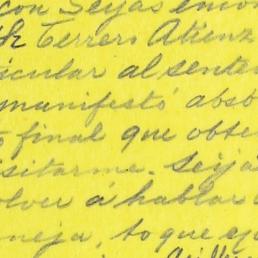 con Seijas enco
Terrero Atienz
icular al sente
manifestó abso
o final que obte
isitarme. Seija
olver á hablar
neja, to que eje